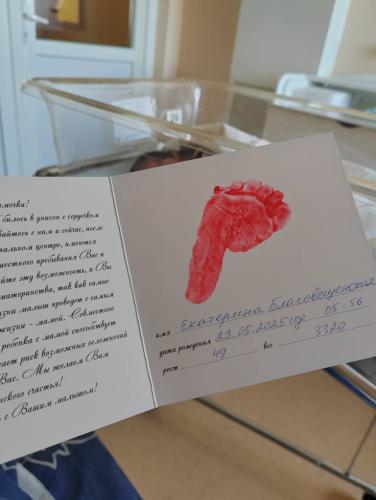 мочка!
билось в унисон с сердечком
вайтесь с ним и сейчас, после
нальном центре, имеются
вместного пребывания Вас и
йте эту возможность, и Вы
материнства, так как самые
зни малыш проведет с самым
жизни - мамой. Совместное
ребенка с мамой способствует
ает риск возможных осложнений
Вас. Мы желаем Вам
нского счастья!
с Вашим малышом!
имя Екатерина Благовещенская
дата рождения 23.05.2025 год 05:56
рост 49 вес 3320